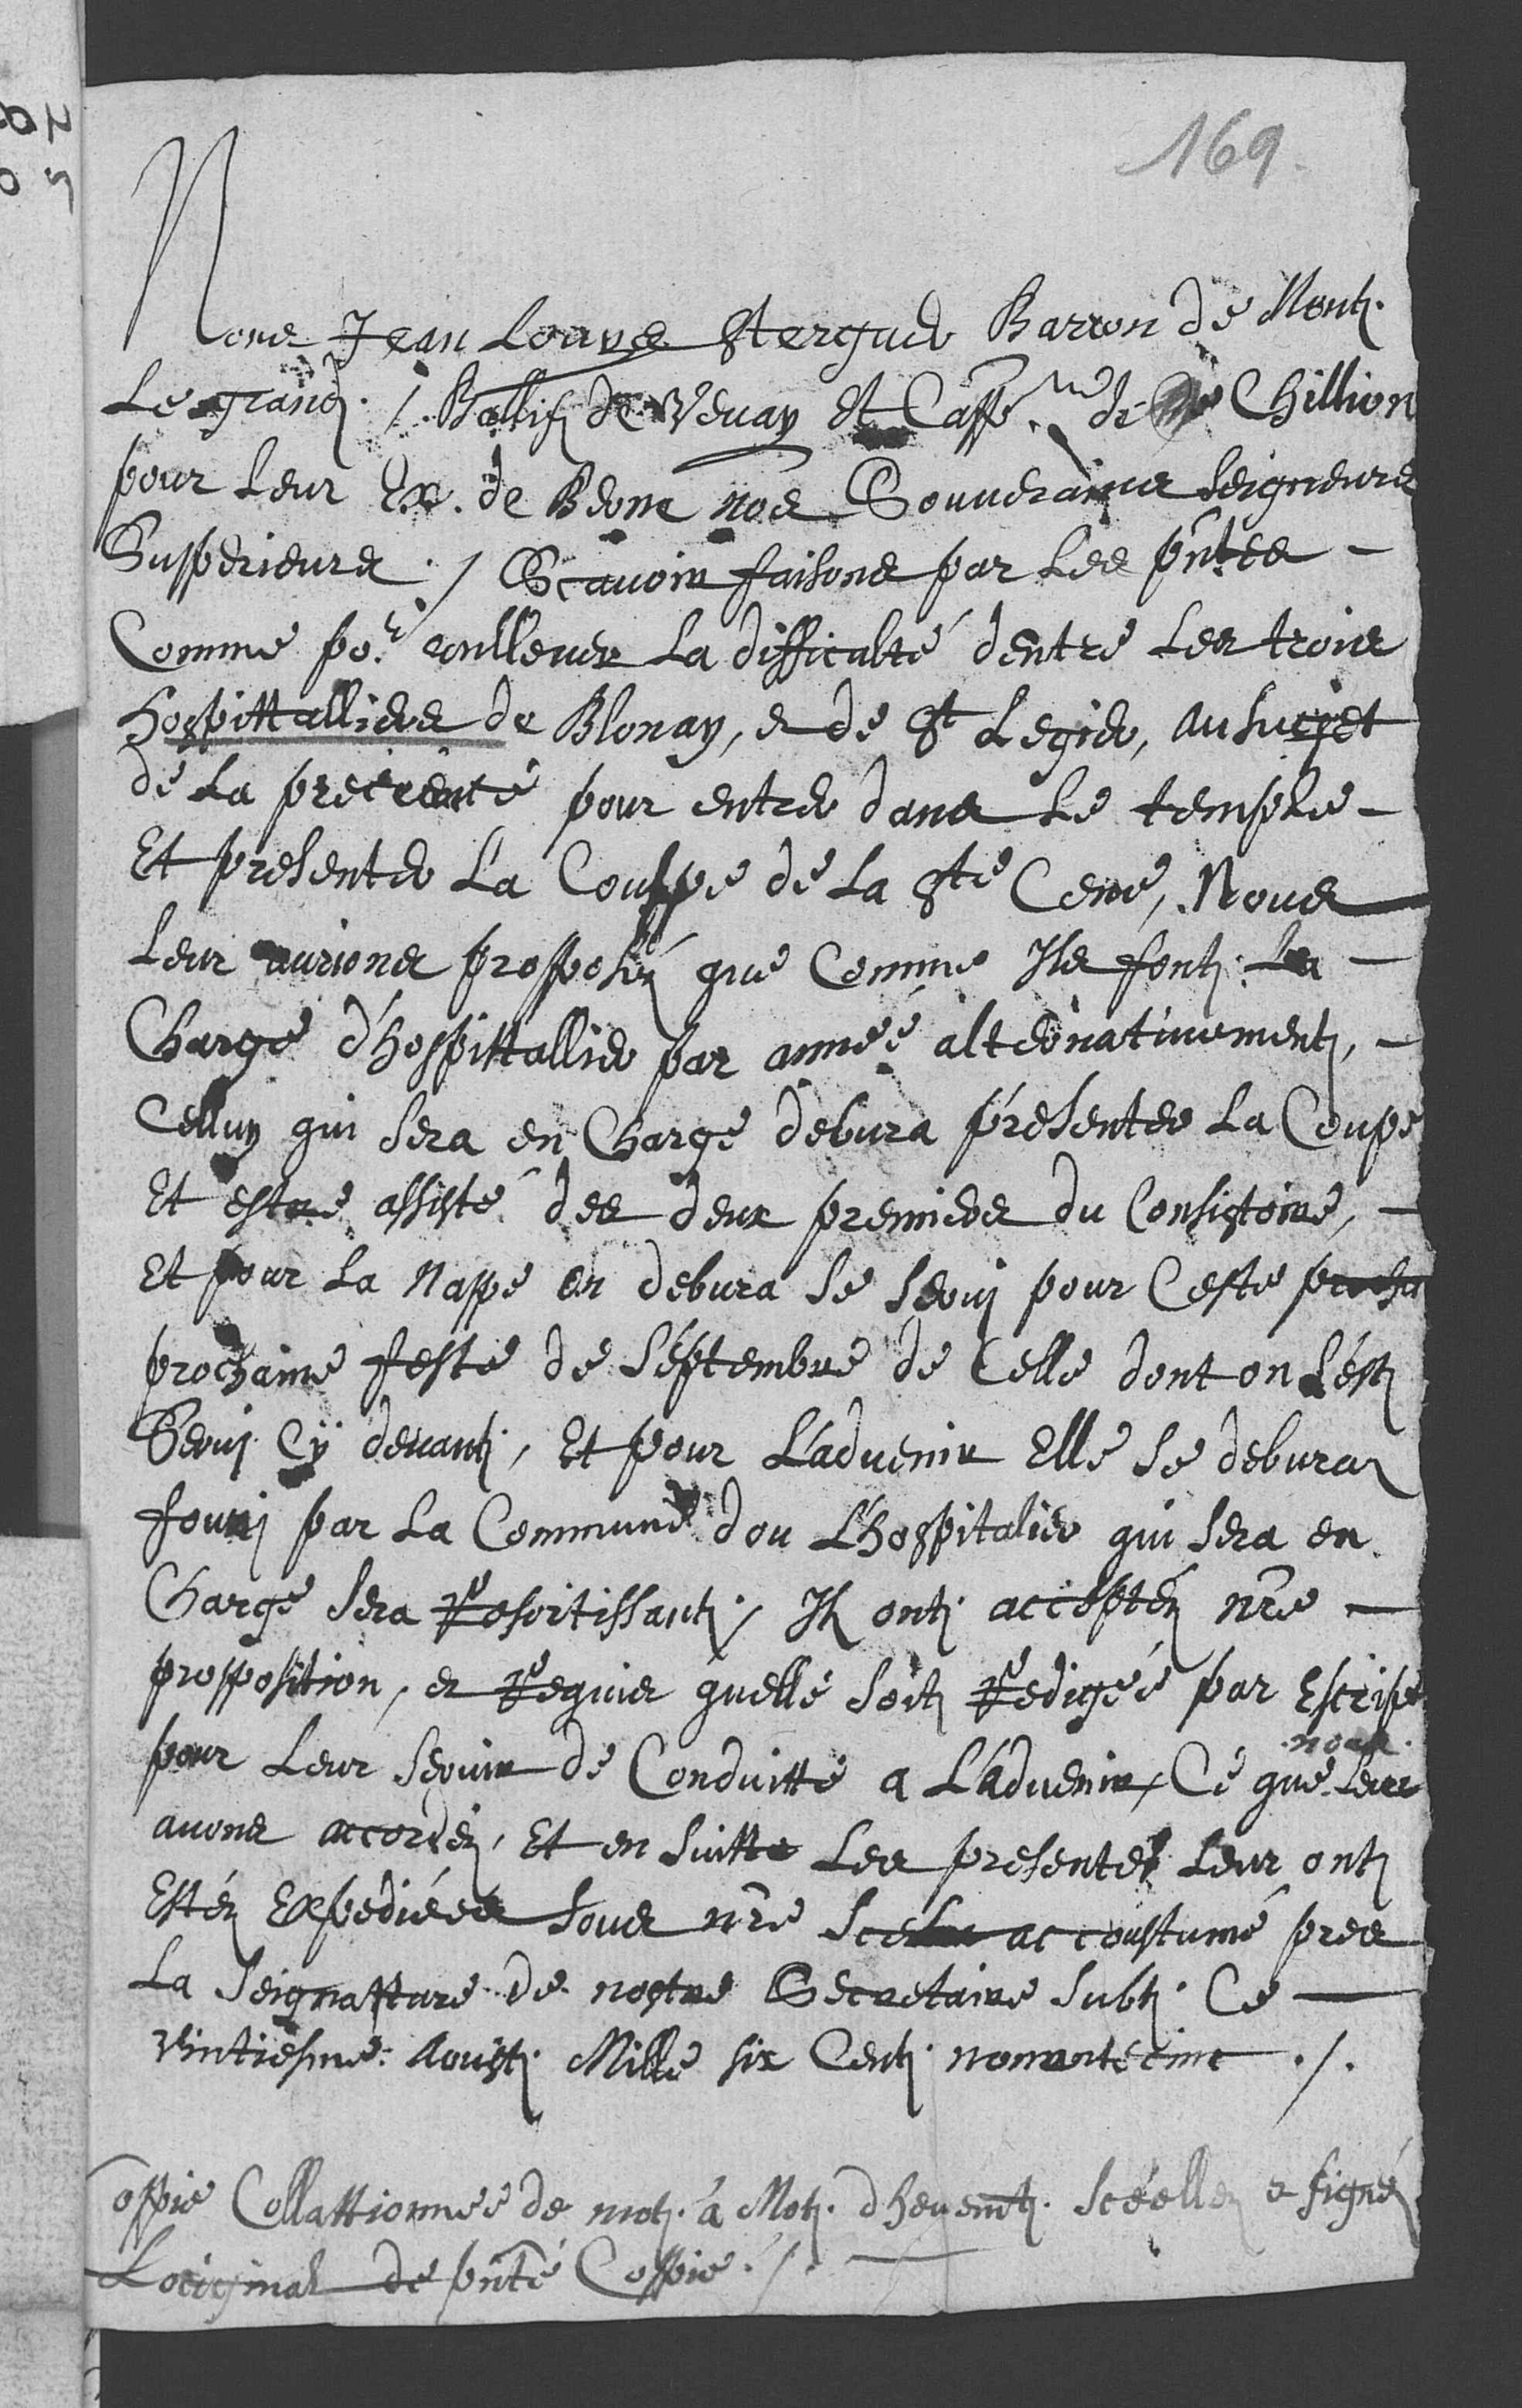 169
Nous Jean Louys Sterguer Barron de Mont
Le grand / Ballif de Vevay Et Cappe.ne de Chillion
pour Leur Ex. de Berne nos Souverains Seigneurs
Supperieurs ./ Scavoir faisons par Les pntes -
Comme por soullever La difficulté dentre Les trois
hospittalliers de Blonay, & de St Legier, au sucjet
de La precceance pour entrer dans Le temple -
Et presenter La Couppe de La Ste Cene, Nous
Leur aurions propposéz que Comme Ils font La -
Charge d'hospittallier par année alternativement, -
Celluy qui sera en Charge debvra présenter La Coupe
Et estre assisté des deux premiers du Consistoire, -
Et pour La Nappe on debvra se servi pour Ceste
prochaine feste de Séptembre de Celle dont on s'est
Servi Cy devant, Et pour L'advenir Elle se debvra
fourni par La Commune dou L'hospitalier qui sera en
Charge sera Resortissant / Il ont acceptéz nre -
propposition, & Requis quelle soit Redigée par Escript
pour Leur servir de Conduitte a L'advenir, Ce que Leur
nous
avons accordéz, Et en suitte Les presentes Leur ont
Estéz Expediéés sous nre Sceau accoustumé pres
La Seignatture de nostre Secretaire subt. Ce -
vintiesme Aoust Mille six Cent nonante cinc ./.
Coppie Collattionnée de mot a Mot dheuemt. Scéelléz & signéz
Loriginal de pnte Coppie ./.